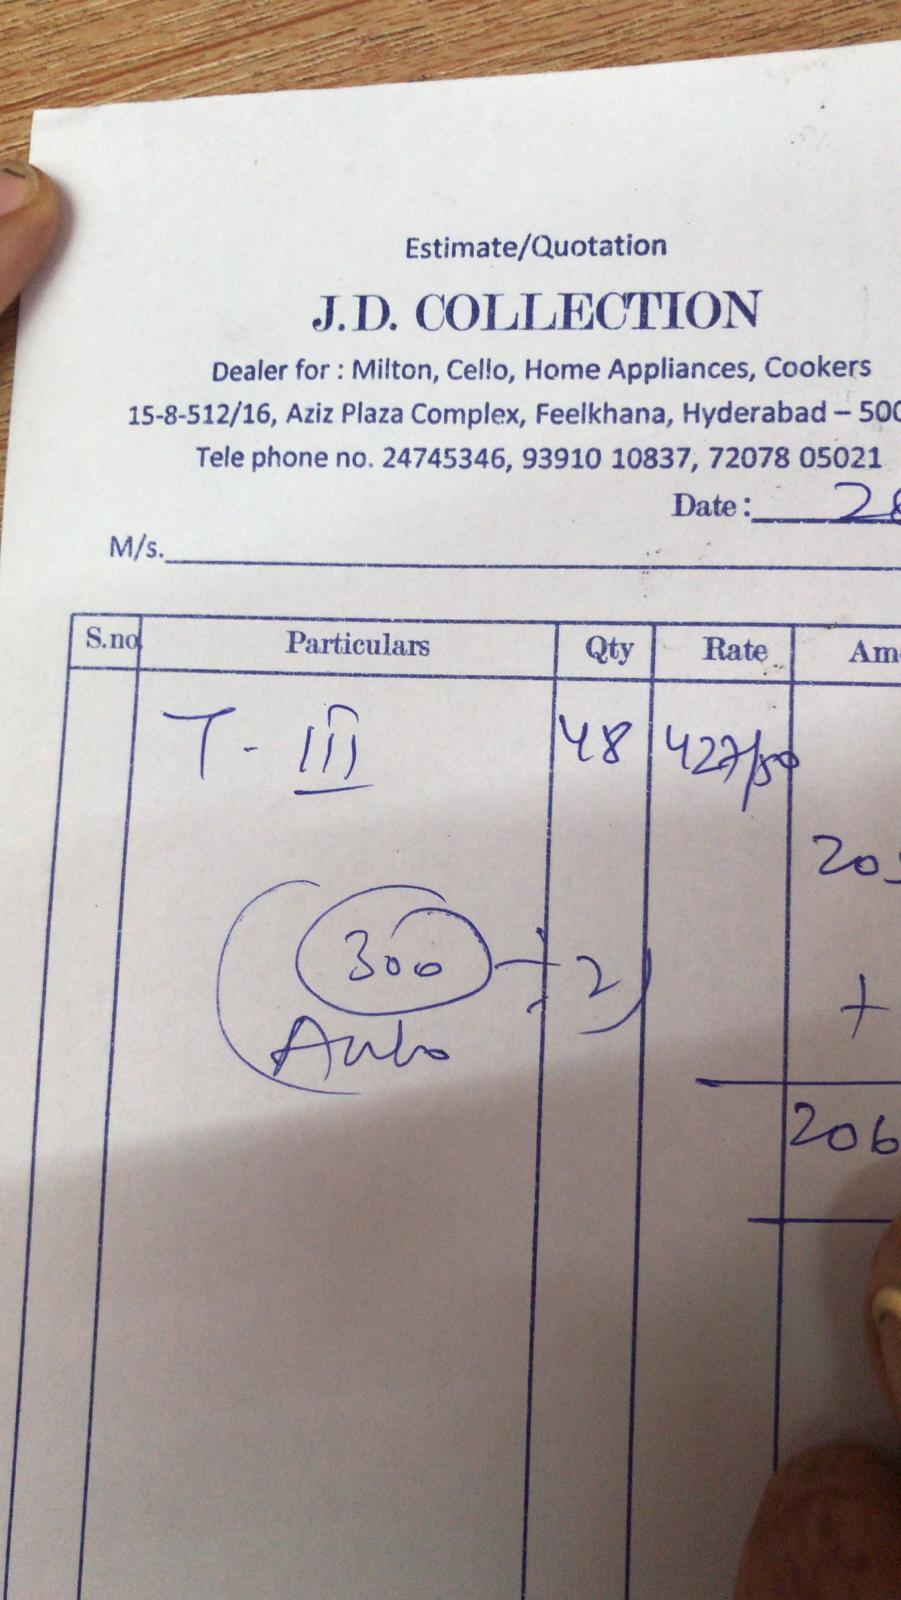 Estimate/Quotation
J.D. COLLECTION
Dealer for : Milton, Cello, Home Appliances, Cookers
15-8-512/16, Aziz Plaza Complex, Feelkhana, Hyderabad – 500
Tele phone no. 24745346, 93910 10837, 72078 05021
Date :
M/s.
S.no Particulars Qty Rate Am
T - III 48 427/50
20
300 2
+
Auto
206